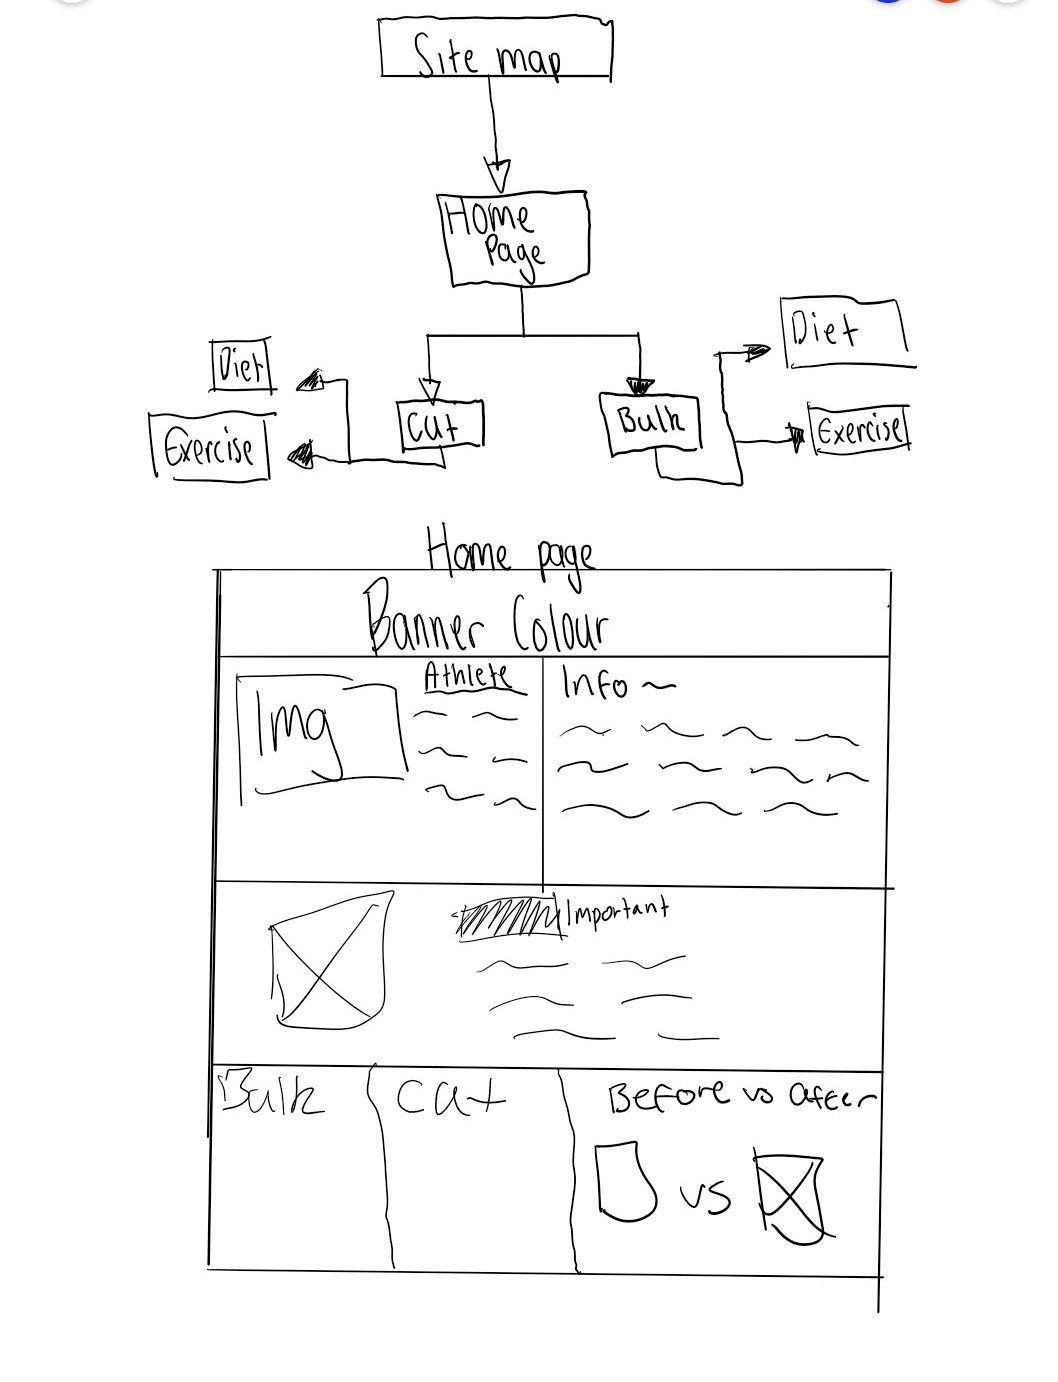 Site map
Home
Page
Diet
Diet
Cut
Bulk
Exercise
Exercise
Home page
Banner Colour
Img
Athlete
Info
Important
Bulk
Cut
Before vs after
vs